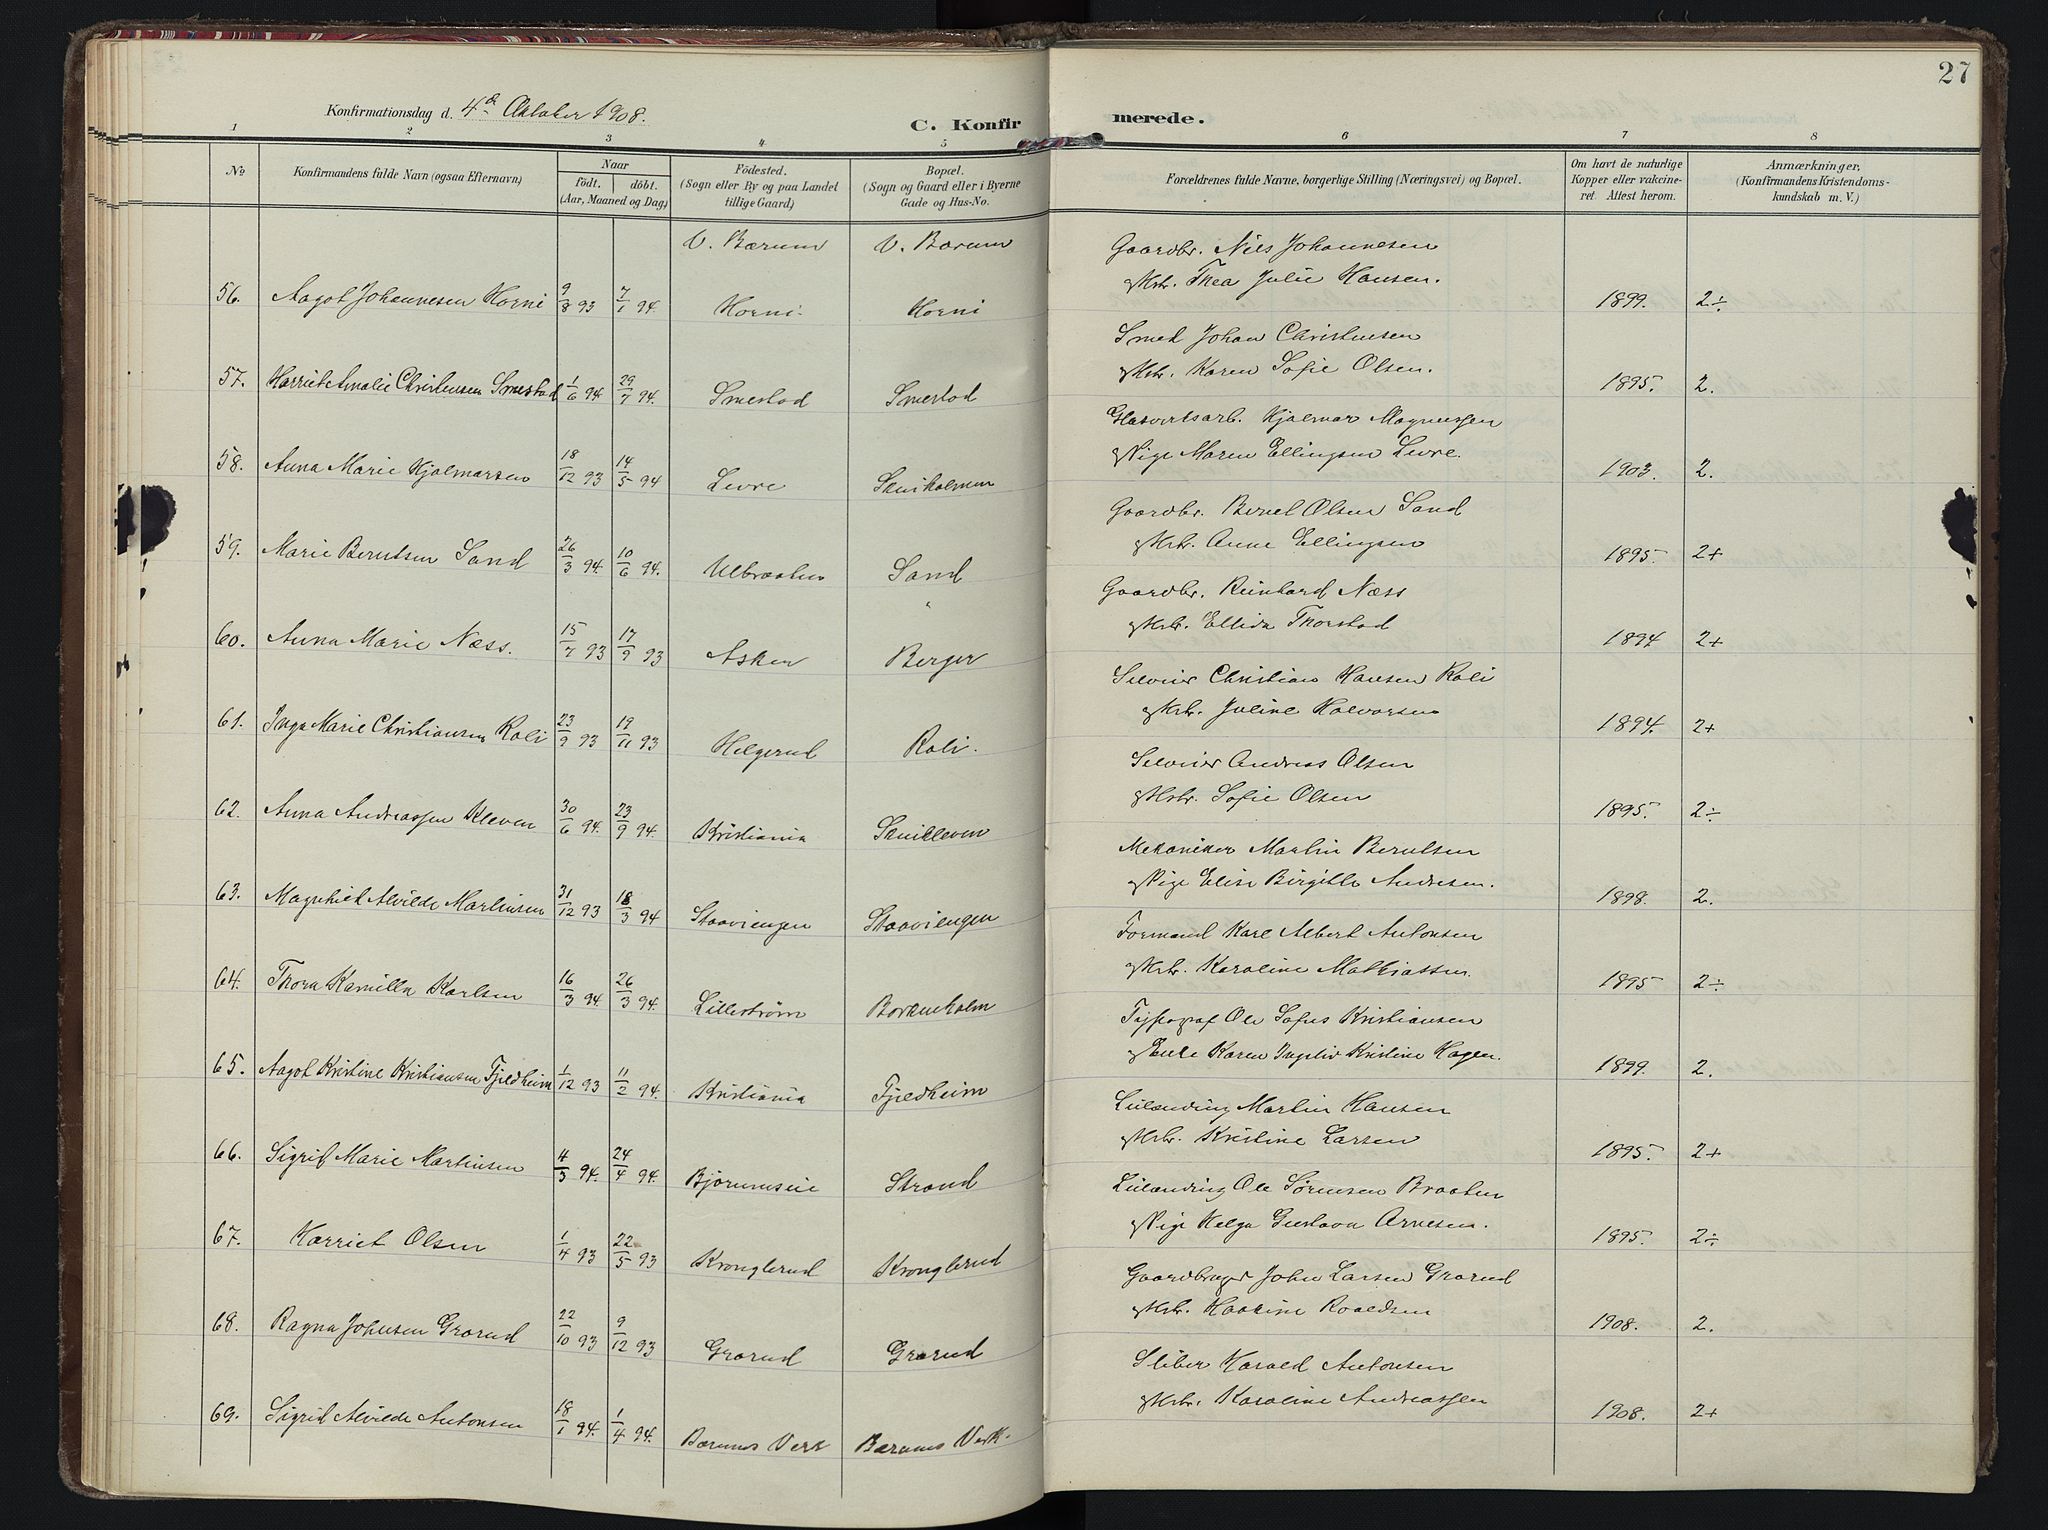 27
Konfirmationsdag d. 4de Oktober 1908.
C. Konfirmerede.
1 2 3 4 5 6 7 8
No
Konfirmandens fulde Navn (ogsaa Efternavn)
Naar
födt. döbt.
(Aar, Maaned og Dag)
Födested.
(Sogn eller By og paa Landet
tillige Gaard)
Bopæl.
(Sogn og Gaard eller i Byerne
Gade og Hus-No.
Forældrenes fulde Navne, borgerlige Stilling (Næringsvei) og Bopæl.
Om havt de naturlige
Kopper eller vakcine-
ret. Attest herom.
Anmærkninger,
(Konfirmandens Kristendoms-
kundskab m. V.)
V. Bærum V. Bærum Gaardbr. Nils Johannesen
56. Aagot Johannesen Horni 9/8 93 7/1 94. Horni. Horni og Hstr. Thea Julie Hansen. 1899. 2÷
Smed Johan Christensen
57. Harriet Amalie Christensen Smestad 1/6 94 29/7 94. Smestad Smestad og Hstr. Karen Sofie Olsen. 1895. 2.
Glasverksarb. Hjalmar Magnussen
58. Anna Marie Hjalmarsen 18/12 93 14/5 94 Levre Skuiholmen og Pige Maren Ellingsen Levre. 1903. 2.
Gaardbr. Bernt Olsen Sand
59. Marie Berntsen Sand 26/3 94. 10/6 94. Ulbraaten Sand og Hstr. Anne Ellingsen 1895. 2+
Gaardbr. Reinhard Næss
60. Anna Marie Næss. 15/7 93 17/9 93 Asker Berger og Hstr. Ellida Thorstad 1894 2+
Selveier Christian Hansen Kali
61. Inga Marie Christiansen Kali 23/9 93 19/11 93 Helgerud Kali. og Hstr. Juline Halvorsen 1894. 2+
Selveier Andreas Olsen
62. Anna Andreassen Kleven 30/6 94. 23/9 94. Kristiania Skuikleven og Hstr. Sofie Olsen 1895. 2÷
Mekaniker Martin Berntsen
63. Magnhild Alvilde Martinsen 31/12 93 18/3 94 Staaviengen Staaviengen og Pige Elise Birgitte Andresen. 1898. 2.
Formand Karl Albert Antonsen
64. Thora Kamilla Karlsen 16/3 94. 26/3 94. Lillestrøm Borkenholm og Hstr. Karoline Mathiassen. 1895 2÷
Typograf Ole Sofus Kristiansen
65. Aagot Kristine Kristiansen Fjeldheim 1/12 93 11/2 94. Kristiania Fjeldheim og Enke Karen Ingeliv Kristine Hagen. 1899. 2.
Leilænding Martin Hansen
66. Sigrid Marie Martinsen 11/3 94. 24/4 94. Bjørumseie Strand og Hstr. Kristine Larsen 1895. 2+
Leilænding Ole Sørensen Braaten
67. Harriet Olsen 1/4 93 22/5 93 Kronglerud Kronglerud og Pige Helga Gustava Arnesen. 1895. 2÷
Gaardbruger John Larsen Grorud
68. Ragna Johnsen Grorud 22/10 93 9/12 93 Grorud Grorud og Hstr. Haakine Roaldsen 1908. 2.
Sliber Harald Antonsen
69. Sigrid Alvilde Antonsen 18/1 94. 1/4 94. Bærums Verk Bærums Verk. og Hstr. Karoline Andreassen 1908. 2+